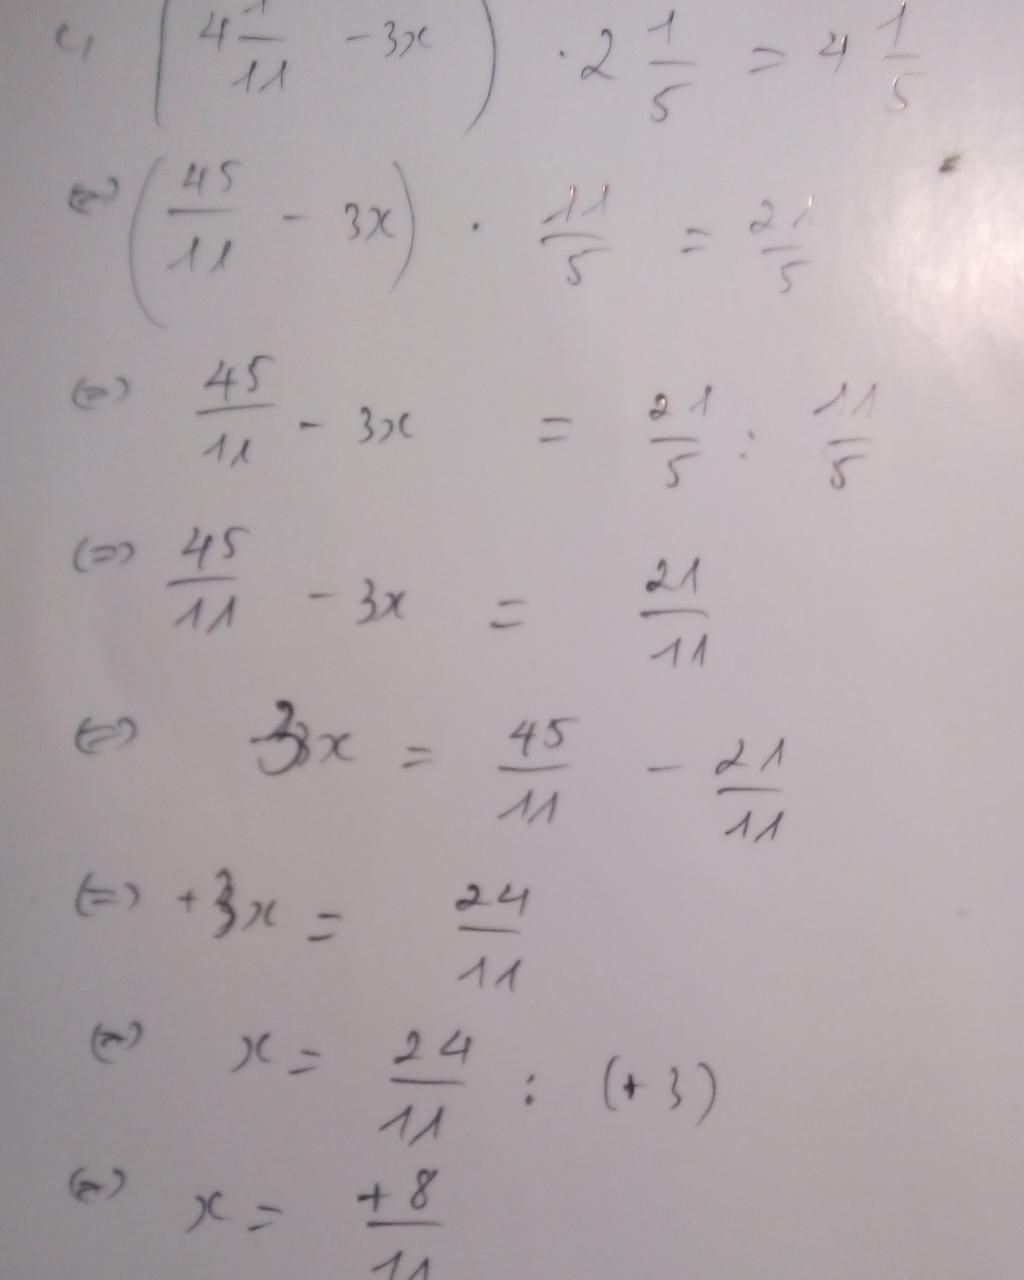 c, (4 1/11 - 3x) · 2 1/5 = 4 1/5
(=) (45/11 - 3x) · 11/5 = 21/5
(=) 45/11 - 3x = 21/5 : 11/5
(=) 45/11 - 3x = 21/11
(=) 3x = 45/11 - 21/11
(=) +3x = 24/11
(=) x = 24/11 : (+3)
(=) x = +8/11